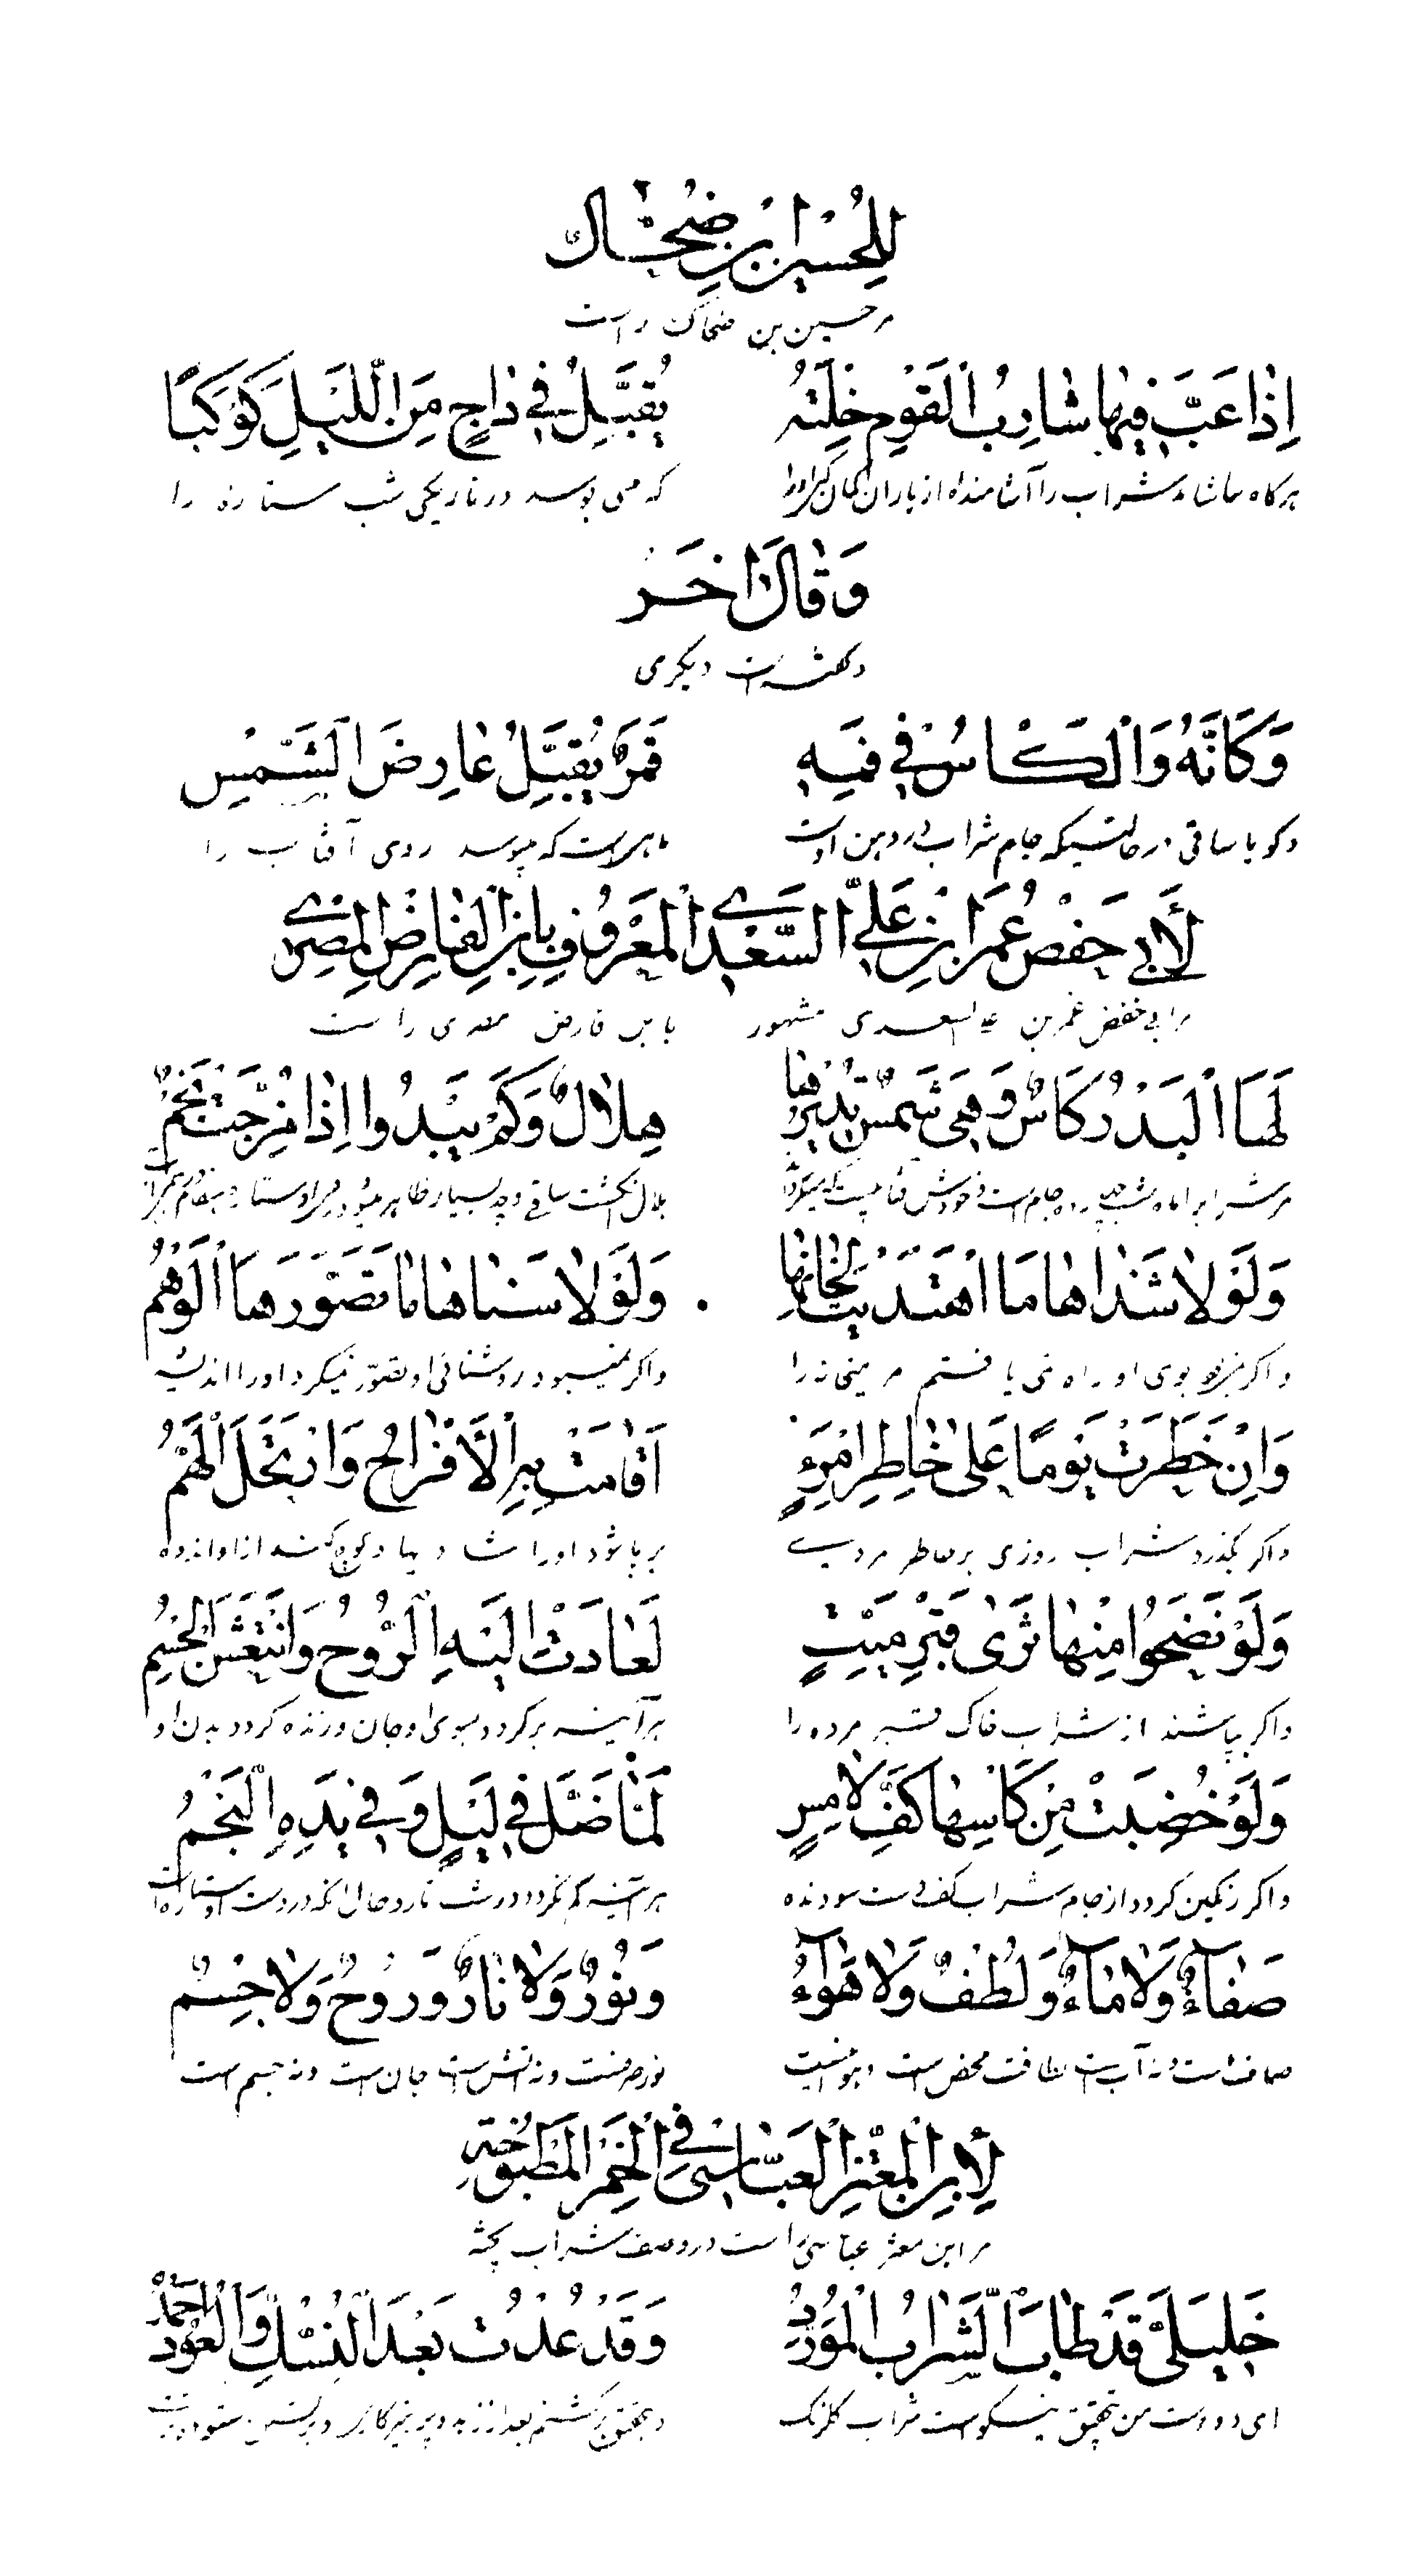 لِلْحُسَيْنِ ابْنِ ضَحَّاكٍ
مر حسین بن ضحاک راست
اِذٰا عَبَّ فِيهٰا شٰارِبُ الْقَوْمِ خِلْتَهُ يُقَبِّلُ فِي دٰاجٍ مِنَ اللَّيْلِ كَوْكَبًا
هرکاه بیاشامد شراب را آشامنده از یاران کمان که می بوسد در تاریکی شب ستاره را
وَقٰالَ اٰخَرُ
و کفته است دیکری
وَكَاَنَّهُ وَالْكَاسُ فِي فَمِهِ قَمَرٌ يُقَبِّلُ عٰارِضَ الشَّمْسِ
و کویا ساقی در حالتیکه جام شراب در دهن اوست ماهیست که میبوسد روی آفتاب را
لِأَبِي حَفْصٍ عُمَرَ ابْنِ عَلِيٍّ السَّعْدِيِّ الْمَعْرُوفِ بِابْنِ الْفٰارِضِ الْمِصْرِيِّ
مر ابی حفص عمر بن علی السعدی مشهور بابن فارض مصری راست
لَهَا الْبَدْرُ كَاسٌ وَهِيَ شَمْسٌ يُدِيرُهٰا هِلٰالٌ وَكَمْ يَبْدُوا اِذٰا مُزِجَتْ نَجْمٌ
وَلَوْ لٰا شَذٰاهٰا مَا اهْتَدَيْتُ لِحٰانِهٰا وَلَوْ لٰا سَنٰاهٰا مٰا تَصَوَّرَهَا الْوَهْمُ
و اکر نبود بوی او راه نمی یافتم مر میخانه را و اکر نمیبود روشنائی او تصور نمیکرد او را اندیشه
وَاِنْ خَطَرَتْ يَومًا عَلىٰ خٰاطِرِ امْرِءٍ اَقٰامَتْ بِهِ الْأَفْرٰاحُ وَارْتَحَلَ الْهَمُّ
و اکر بکذرد شراب روزی بر خاطر مردی بر پا شود او را شادیها و کوچ کند از او اندوه
وَلَوْ نَضَحُوا مِنْهٰا ثَرٰى قَبْرِ مَيِّتٍ لَعٰادَتْ اِلَيْهِ الرُّوحُ وَانْتَعَشَ الْجِسْمُ
و اکر بپاشند از شراب خاک قبر مرده را هر آینه برکردد بسوی او جان و زنده کردد بدن او
وَلَوْ خُضِبَتْ مِنْ كَاْسِهٰا كَفُّ لٰامِسٍ لَمٰا ضَلَّ فِي لَيْلٍ وَفِي يَدِهِ النَّجْمُ
و اکر رنکین کردد از جام شراب کف دست سودنده هر آینه کم نکردد در شب تار و حال آنکه در دست او ستاره است
صَفٰاءٌ وَلٰا مٰاءٌ وَلُطْفٌ وَلٰا هَوٰاءٌ وَنُورٌ وَلٰا نٰارٌ وَرُوحٌ وَلٰا جِسْمٌ
صاف است و نه آب است لطافت محض است و هوا نیست نور صرفست و نه آتش است جان است و نه جسم است
لِأِبْنِ الْمُعْتَزِّ الْعَبّٰاسِيِّ فِي الْخَمْرِ الْمَطْبُوخَةِ
مر ابن معتز عباسی راست در وصف شراب پخته
خَلِيلَيَّ قَدْ طٰابَ الشَّرٰابُ الْمُوَرَّدُ وَقَدْ عُدْتُ بَعْدَ النُّسْكِ وَالْعَوْدُ اَحْمَدُ
ای دو دوست من بتحقیق نیکو است شراب کلرنک